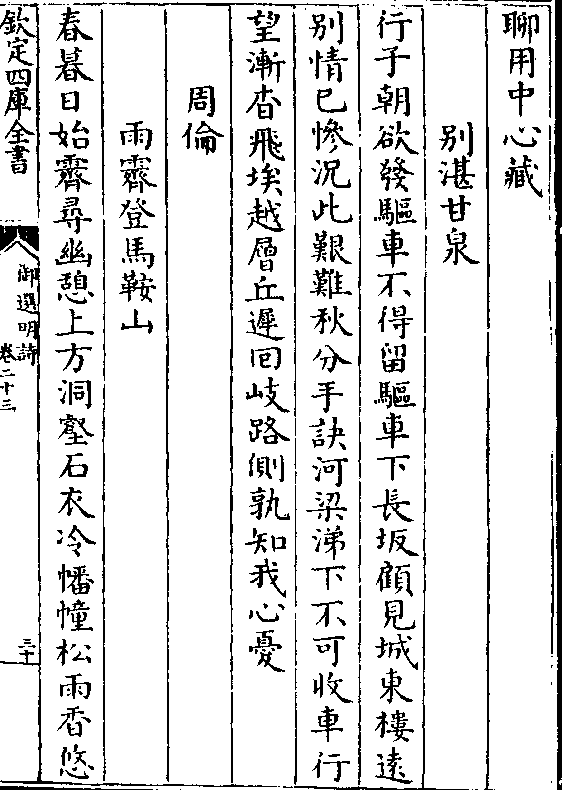 聊用中心藏
別湛甘泉
行子朝欲發驅車不得留驅車下長坂顧見城東樓遠
別情已慘況此艱難秋分手訣河梁涕下不可收車行
望漸杳飛埃越層丘遲回岐路側孰知我心憂
周倫
雨霽登馬鞍山
春暮日始霽尋幽憩上方洞壑石衣冷幡幢松雨香悠
欽定四庫全書
御選明詩
卷二十三
三十